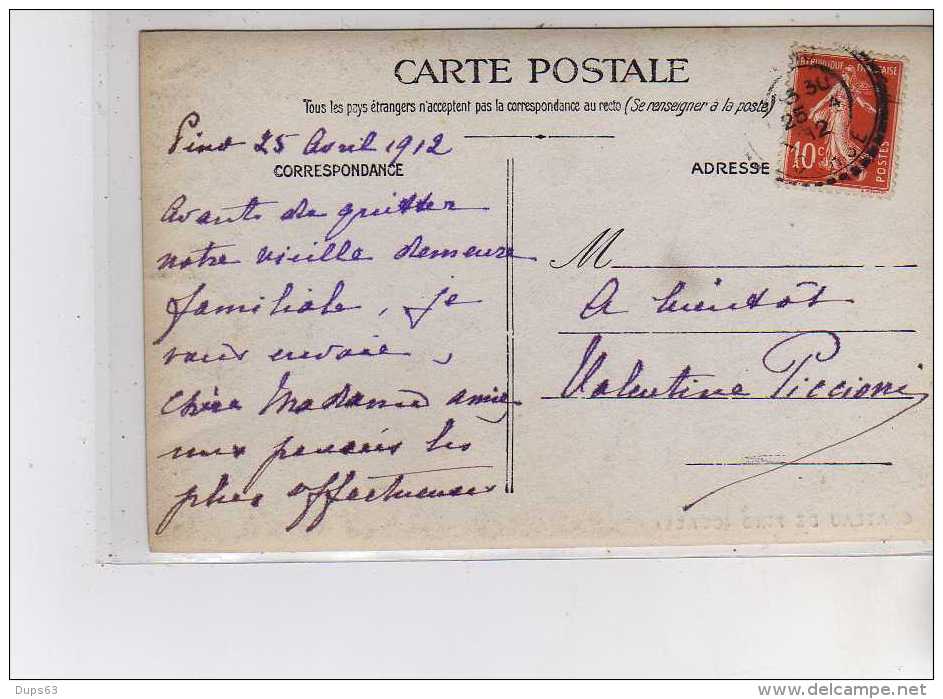 CARTE POSTALE
Tous les pays étrangers n'acceptent pas la correspondance au recto (Se renseigner à la poste)
Pino 25 Avril 1912
CORRESPONDANCE
Avant de quitter
notre vieille demeure
familiale, je
vous envoie,
chère Madame amie
mes pensées les
plus affectueuses
ADRESSE
M
A bientôt
Valentine Piccioni
RÉPUBLIQUE FRANÇAISE
10 C
POSTES
30
25 4
12
CORSE
CHATEAU DE PINO (CORSE)
Dups63
www.delcampe.net